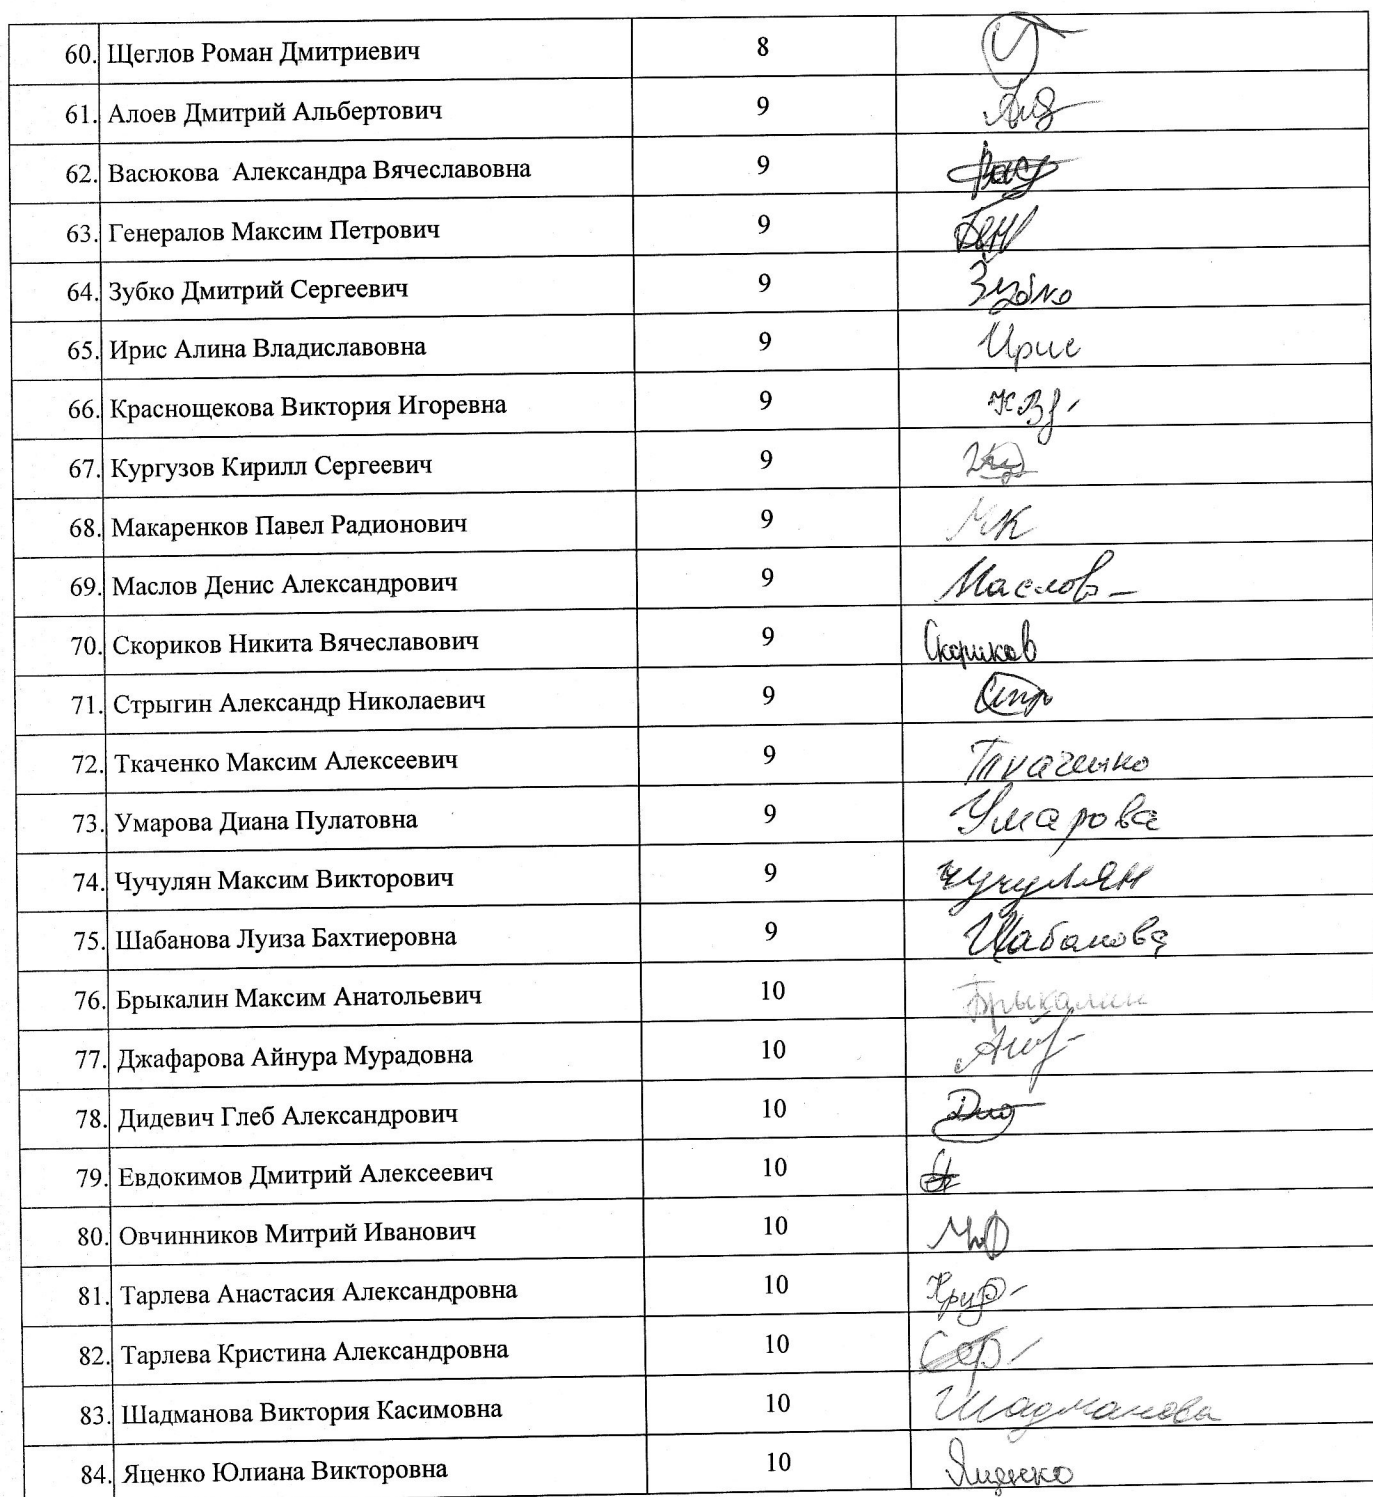 60. Щеглов Роман Дмитриевич 8
61. Алоев Дмитрий Альбертович 9
62. Васюкова Александра Вячеславовна 9
63. Генералов Максим Петрович 9
64. Зубко Дмитрий Сергеевич 9 Зубко
65. Ирис Алина Владиславовна 9 Ирис
66. Краснощекова Виктория Игоревна 9
67. Кургузов Кирилл Сергеевич 9
68. Макаренков Павел Радионович 9 МК
69. Маслов Денис Александрович 9 Маслов
70. Скориков Никита Вячеславович 9 Скориков
71. Стрыгин Александр Николаевич 9 Стр
72. Ткаченко Максим Алексеевич 9 Ткаченко
73. Умарова Диана Пулатовна 9 Умарова
74. Чучулян Максим Викторович 9 Чучулян
75. Шабанова Луиза Бахтиеровна 9 Шабанова
76. Брыкалин Максим Анатольевич 10 Брыкалин
77. Джафарова Айнура Мурадовна 10
78. Дидевич Глеб Александрович 10
79. Евдокимов Дмитрий Алексеевич 10
80. Овчинников Митрий Иванович 10
81. Тарлева Анастасия Александровна 10
82. Тарлева Кристина Александровна 10
83. Шадманова Виктория Касимовна 10 Шадманова
84. Яценко Юлиана Викторовна 10 Яценко